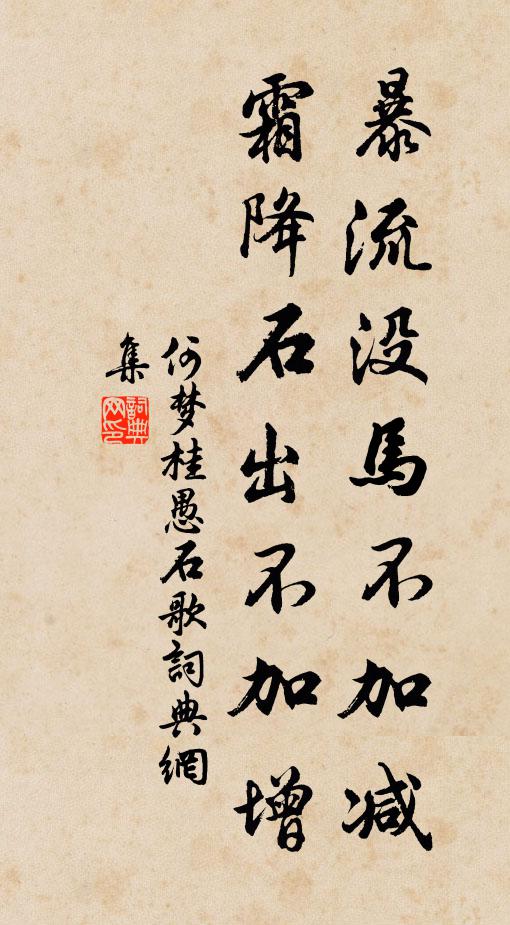 暴流没馬不加减
霜降石出不加增
何梦桂愚石歌詞典網
集
詞典网印